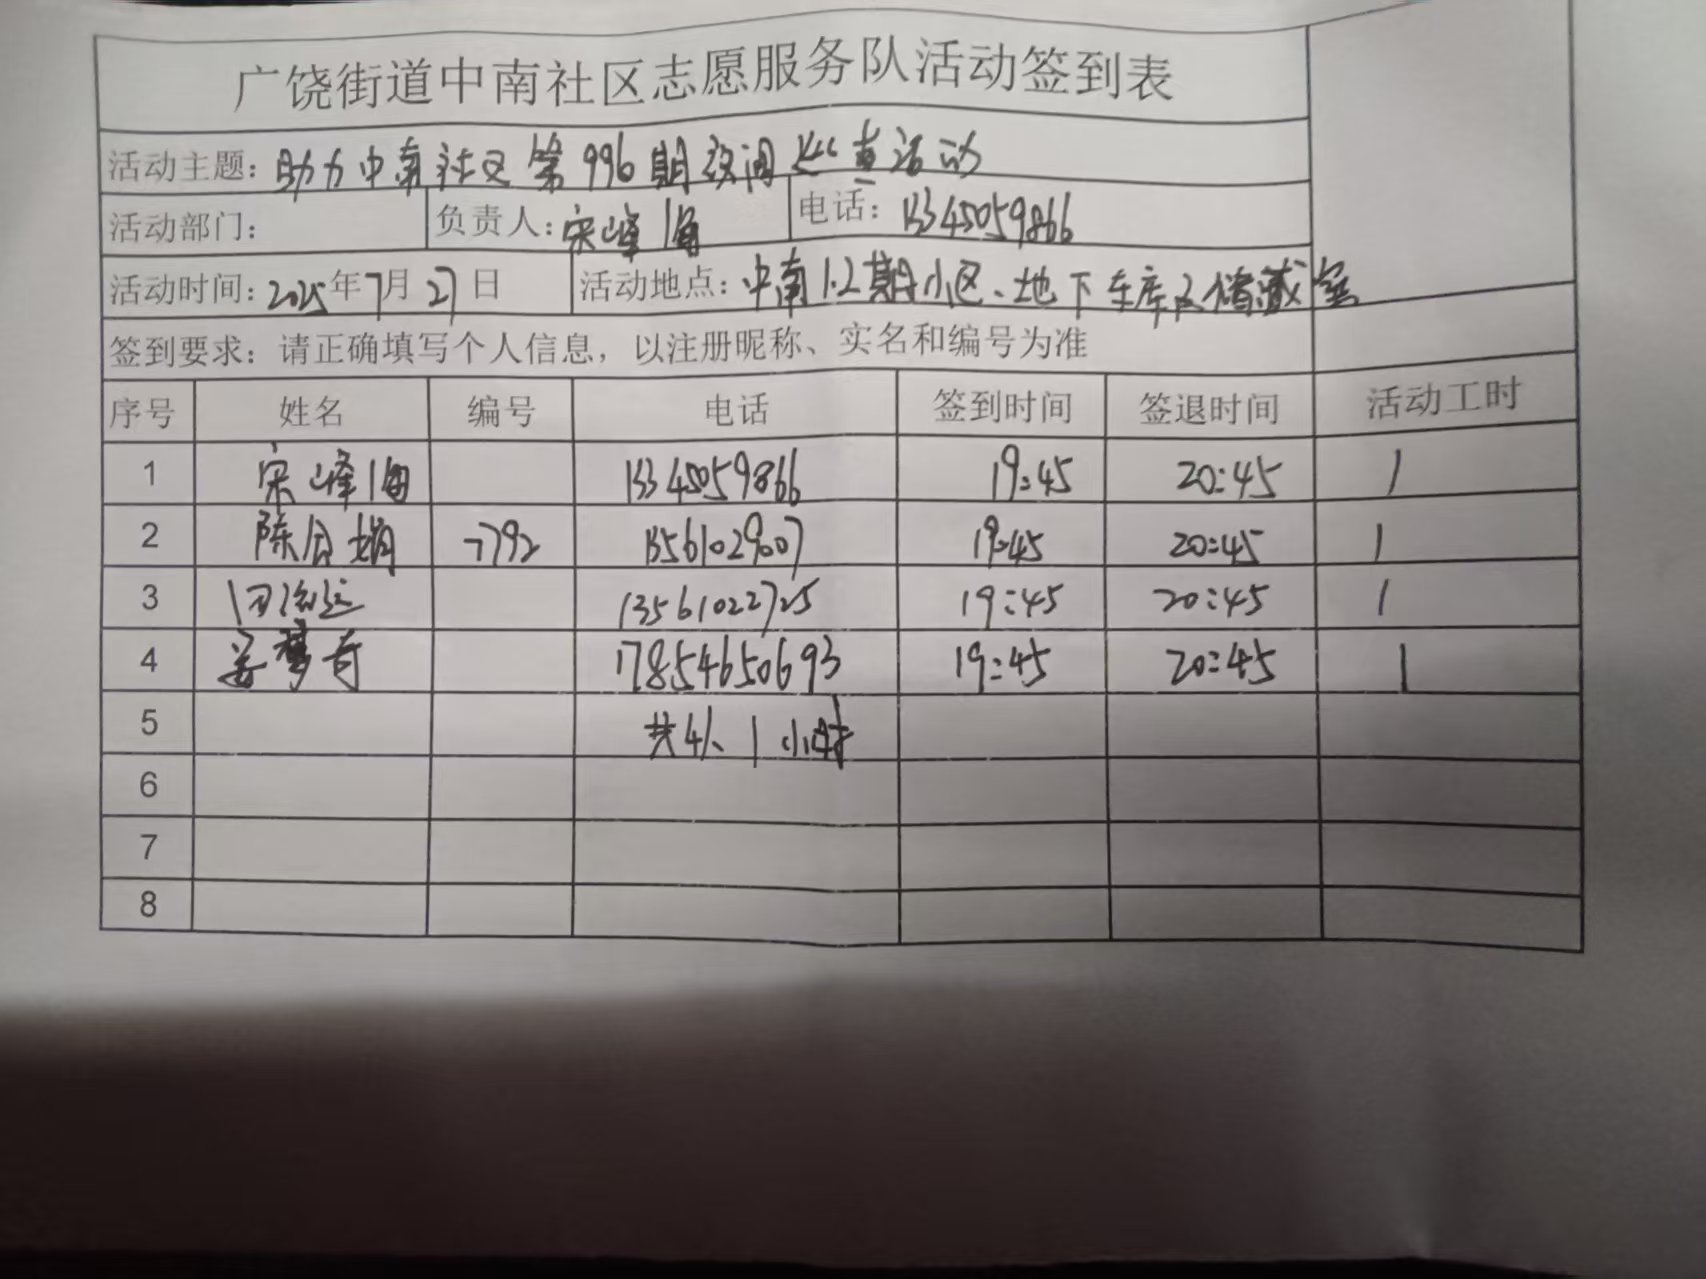 广饶街道中南社区志愿服务队活动签到表
活动主题：助力中南社区第996期夜间巡查活动
活动部门： 负责人：宋峰海 电话：13345059866
活动时间：2025年7月27日 活动地点：中南1.2期小区、地下车库及储藏室
签到要求：请正确填写个人信息，以注册昵称、实名和编号为准
序号 姓名 编号 电话 签到时间 签退时间 活动工时
1 宋峰海 13345059866 19:45 20:45 1
2 陈 娟 7792 13561029007 19:45 20:45 1
3 13561022725 19:45 20:45 1
4 姜梦奇 17854650693 19:45 20:45 1
5 共4人、1小时
6
7
8